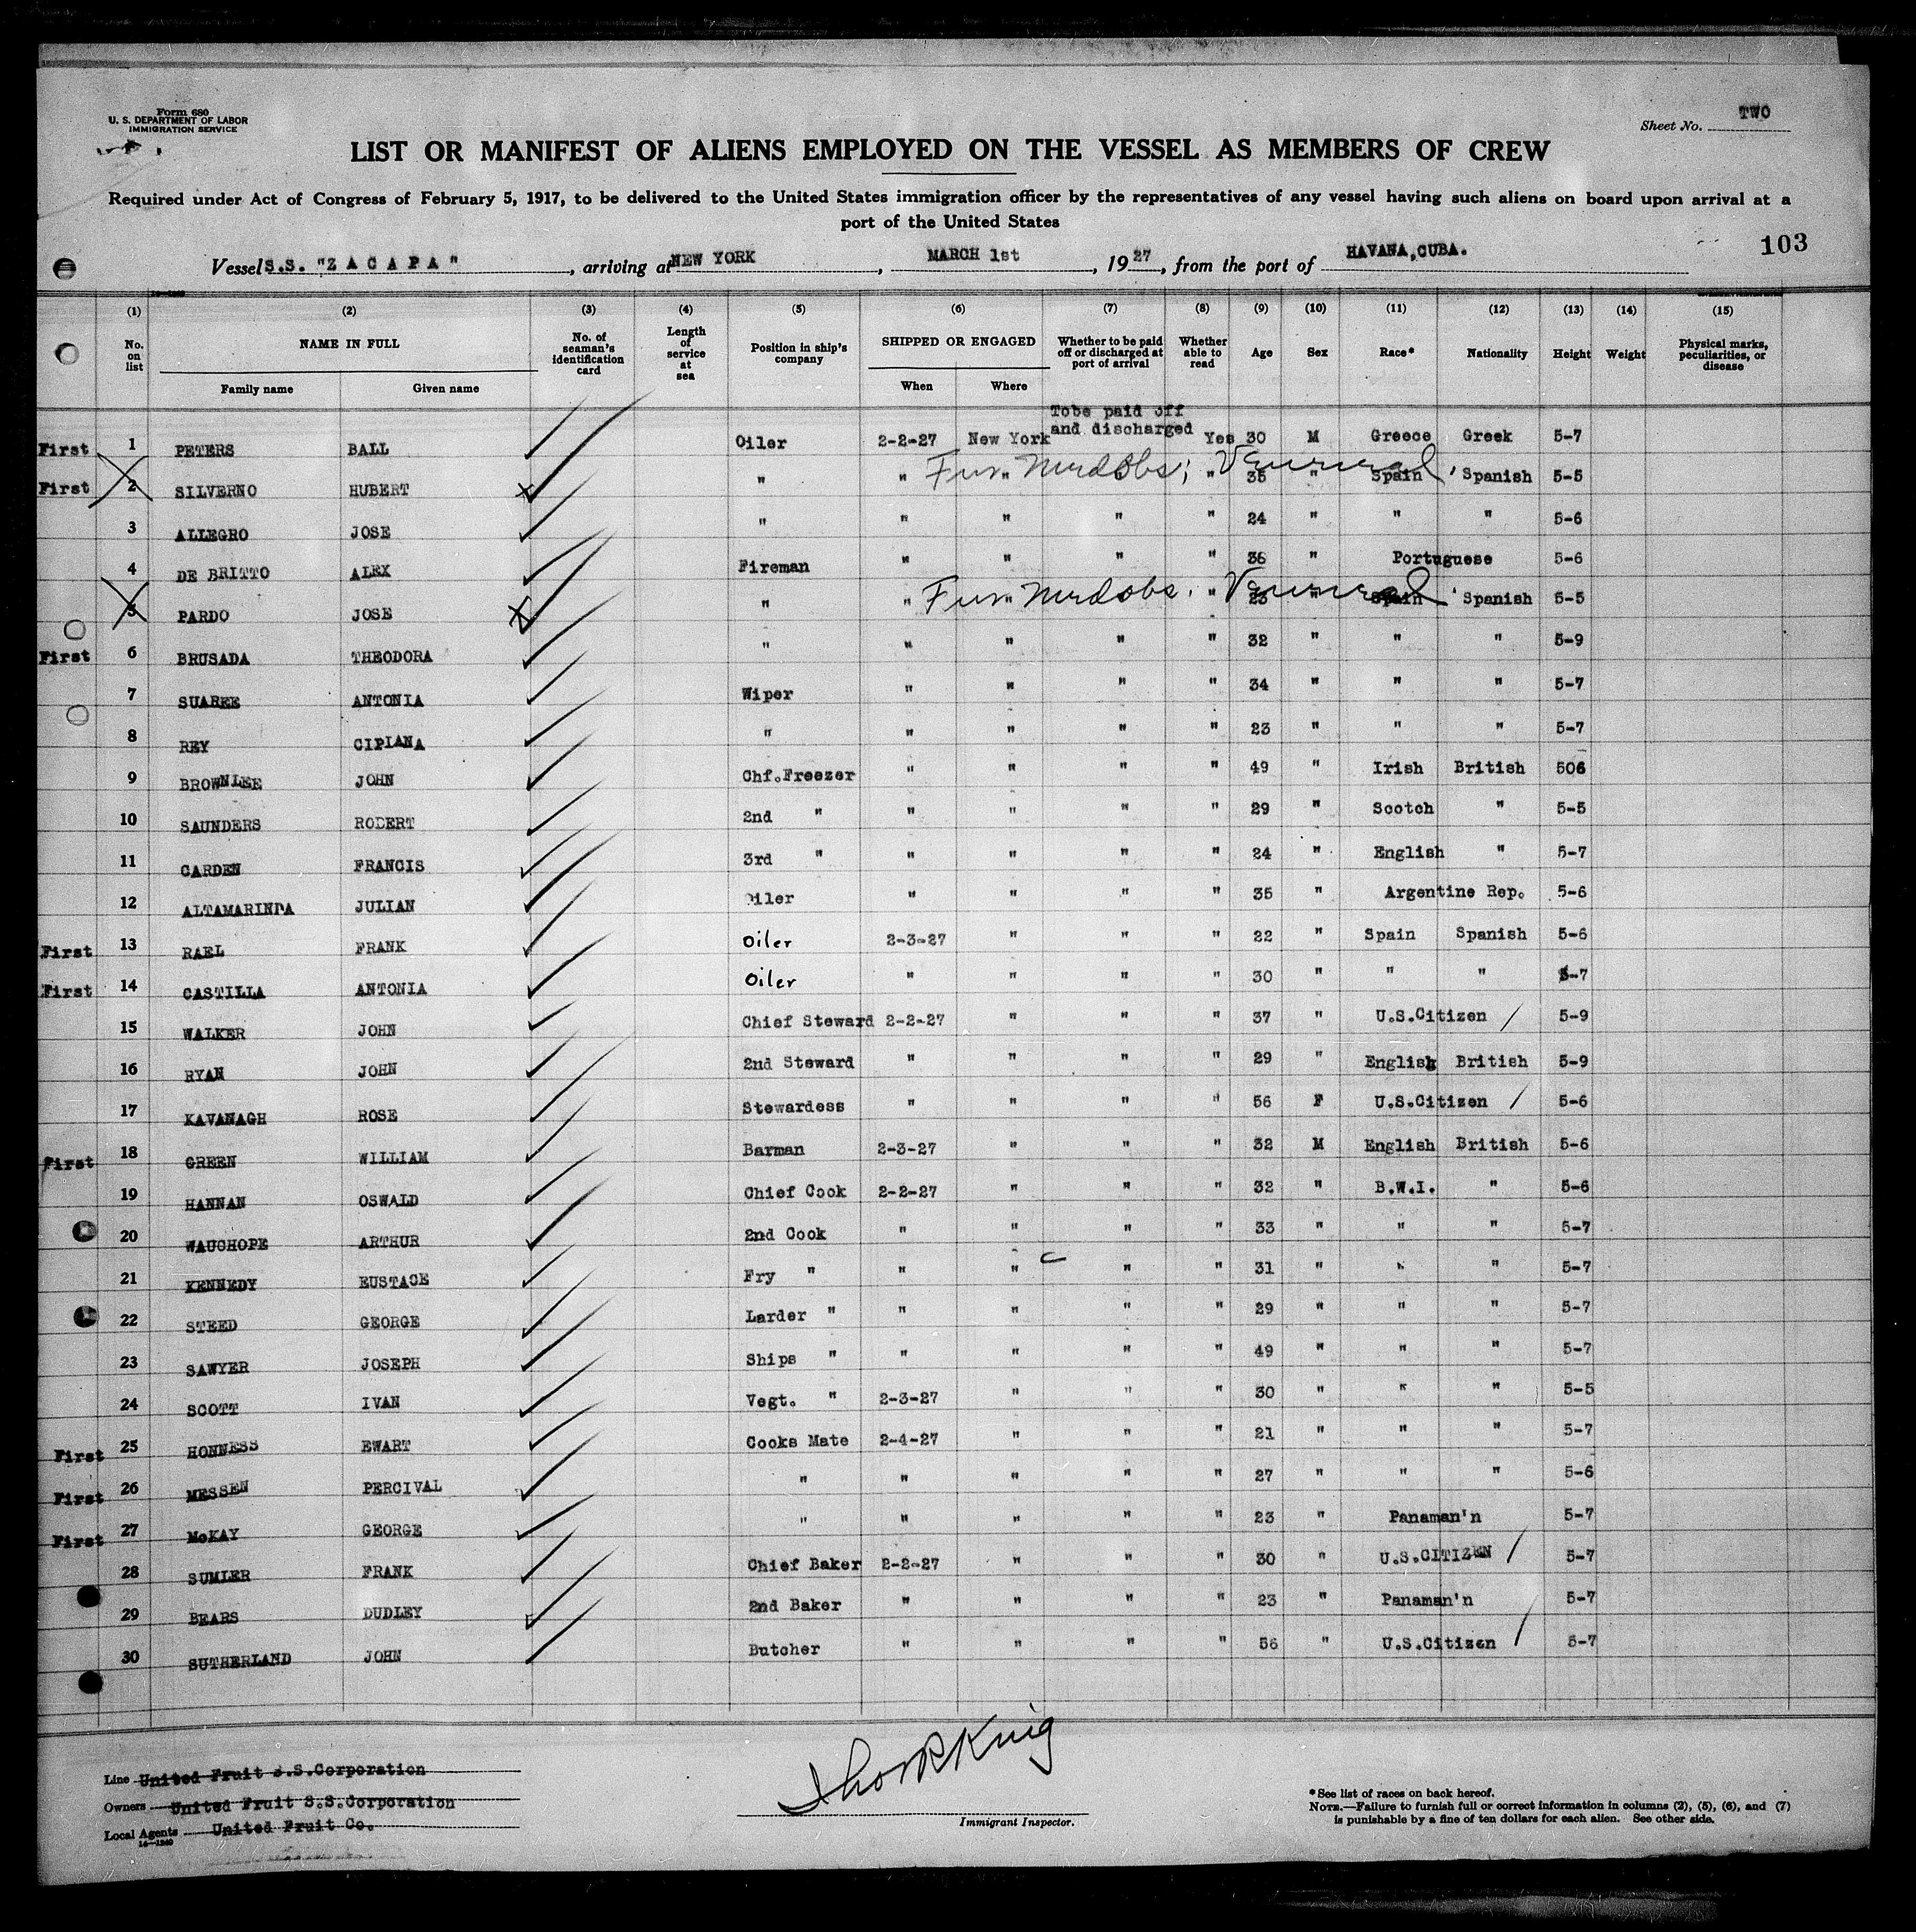 Form 680
U. S. DEPARTMENT OF LABOR
IMMIGRATION SERVICE
Sheet No. TWO
LIST OR MANIFEST OF ALIENS EMPLOYED ON THE VESSEL AS MEMBERS OF CREW
Required under Act of Congress of February 5, 1917, to be delivered to the United States immigration officer by the representatives of any vessel having such aliens on board upon arrival at a
port of the United States
103
Vessel S.S. "Z A C A P A", arriving at NEW YORK, MARCH 1st, 1927, from the port of HAVANA,CUBA.
(1) (2) (3) (4) (5) (6) (7) (8) (9) (10) (11) (12) (13) (14) (15)
No. on list NAME IN FULL Family name Given name No. of seaman's identification card Length of service at sea Position in ship's company SHIPPED OR ENGAGED When Where Whether to be paid off or discharged at port of arrival Whether able to read Age Sex Race* Nationality Height Weight Physical marks, peculiarities, or disease
Tobe paid off
First 1 PETERS BALL Oiler 2-2-27 New York and discharged Yes 30 M Greece Greek 5-7
First 2 SILVERNO HUBERT " " " " " 35 " Spain Spanish 5-5
3 ALLEGRO JOSE " " " " " 24 " " " 5-6
4 DE BRITTO ALEX Fireman " " " " 36 " Portuguese 5-6
5 PARDO JOSE " " " " 23 " Spain Spanish 5-5
First 6 BRUSADA THEODORA " " " " " 32 " " " 5-9
7 SUAREE ANTONIA Wiper " " " " 34 " " " 5-7
8 REY CIPIANA " " " " " 23 " " " 5-7
9 BROWNLEE JOHN Chf.Freezer " " " " 49 " Irish British 506
10 SAUNDERS ROBERT 2nd " " " " " 29 " Scotch " 5-5
11 CARDEN FRANCIS 3rd " " " " " 24 " English " 5-7
12 ALTAMARINDA JULIAN Oiler " " " " 35 " Argentine Rep. 5-6
First 13 RAEL FRANK Oiler 2-3-27 " " " 22 " Spain Spanish 5-6
First 14 CASTILLA ANTONIA Oiler " " " " 30 " " " 5-7
15 WALKER JOHN Chief Steward 2-2-27 " " " 37 " U.S.Citizen / 5-9
16 RYAN JOHN 2nd Steward " " " " 29 " English British 5-9
17 KAVANAGH ROSE Stewardess " " " " 56 F U.S.Citizen / 5-6
First 18 GREEN WILLIAM Barman 2-3-27 " " " 32 M English British 5-6
19 HANNAN OSWALD Chief Cook 2-2-27 " " " 32 " B.W.I. " 5-6
20 WAUCHOPE ARTHUR 2nd Cook " " " " 33 " " " 5-7
21 KENNEDY EUSTACE Fry " " " " " 31 " " " 5-7
22 STEED GEORGE Larder " " " " " 29 " " " 5-7
23 SAWYER JOSEPH Ships " " " " " 49 " " " 5-7
24 SCOTT IVAN Vegt. " 2-3-27 " " " 30 " " " 5-5
First 25 HONNESS EWART Cooks Mate 2-4-27 " " " 21 " " " 5-7
First 26 MESSEN PERCIVAL " " " " " 27 " " " 5-6
First 27 McKAY GEORGE " " " " " 23 " Panaman'n 5-7
28 SUMLER FRANK Chief Baker 2-2-27 " " " 30 " U.S.CITIZEN / 5-7
29 BEARS DUDLEY 2nd Baker " " " " 23 " Panaman'n 5-7
30 SUTHERLAND JOHN Butcher " " " " 56 " U.S.Citizen / 5-7
Line United Fruit S.S.Corporation
Owners United Fruit S.S.Corporation
Local Agents United Fruit Co.
14-1240
Immigrant Inspector.
*See list of races on back hereof.
NOTE.—Failure to furnish full or correct information in columns (2), (5), (6), and (7)
is punishable by a fine of ten dollars for each alien. See other side.